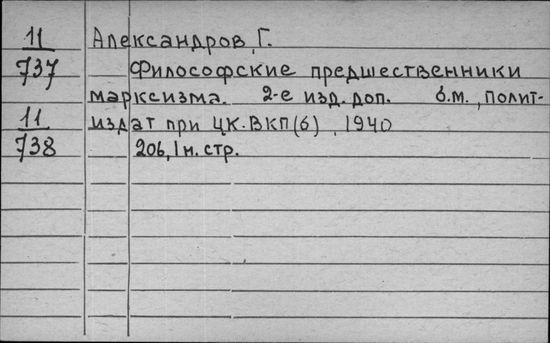 11 Александров, Г.
737 Философские предшественники
марксизма. 2-е изд. доп. б.м., Полит-
11 издат при ЦК.ВКП(б), 1940
738 206, 1 н. стр.